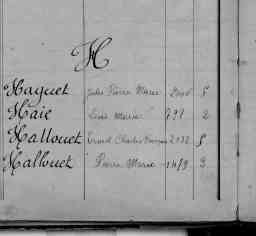 H
Haguet Jules Pierre Marie
Haie Louis Marie 797 2
Hallouet Ernest Charles François 2132 5
Hallouet Pierre Marie 1419 3